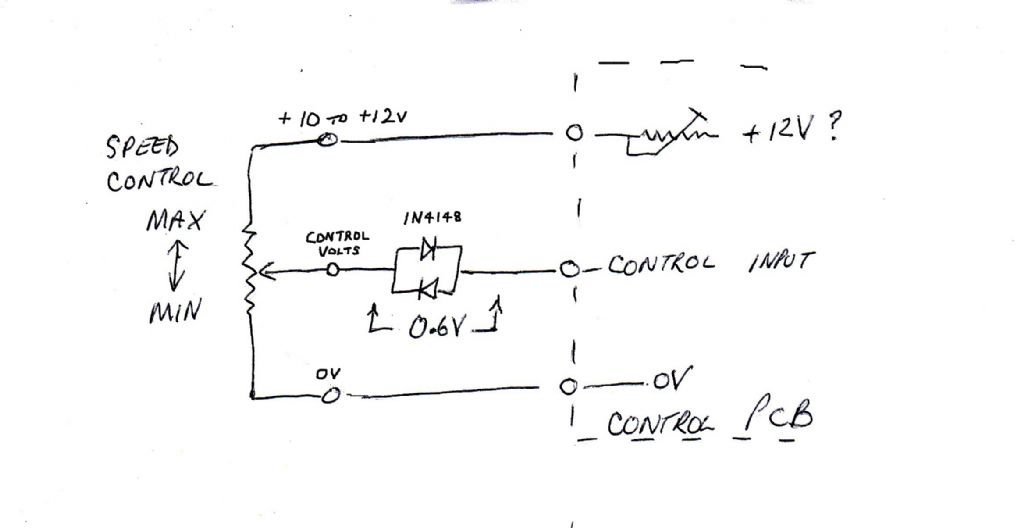 + 10 TO +12V
+ 12V ?
SPEED
CONTROL
MAX
MIN
1N4148
CONTROL
VOLTS
CONTROL INPUT
0.6V
0V
0V
CONTROL PCB